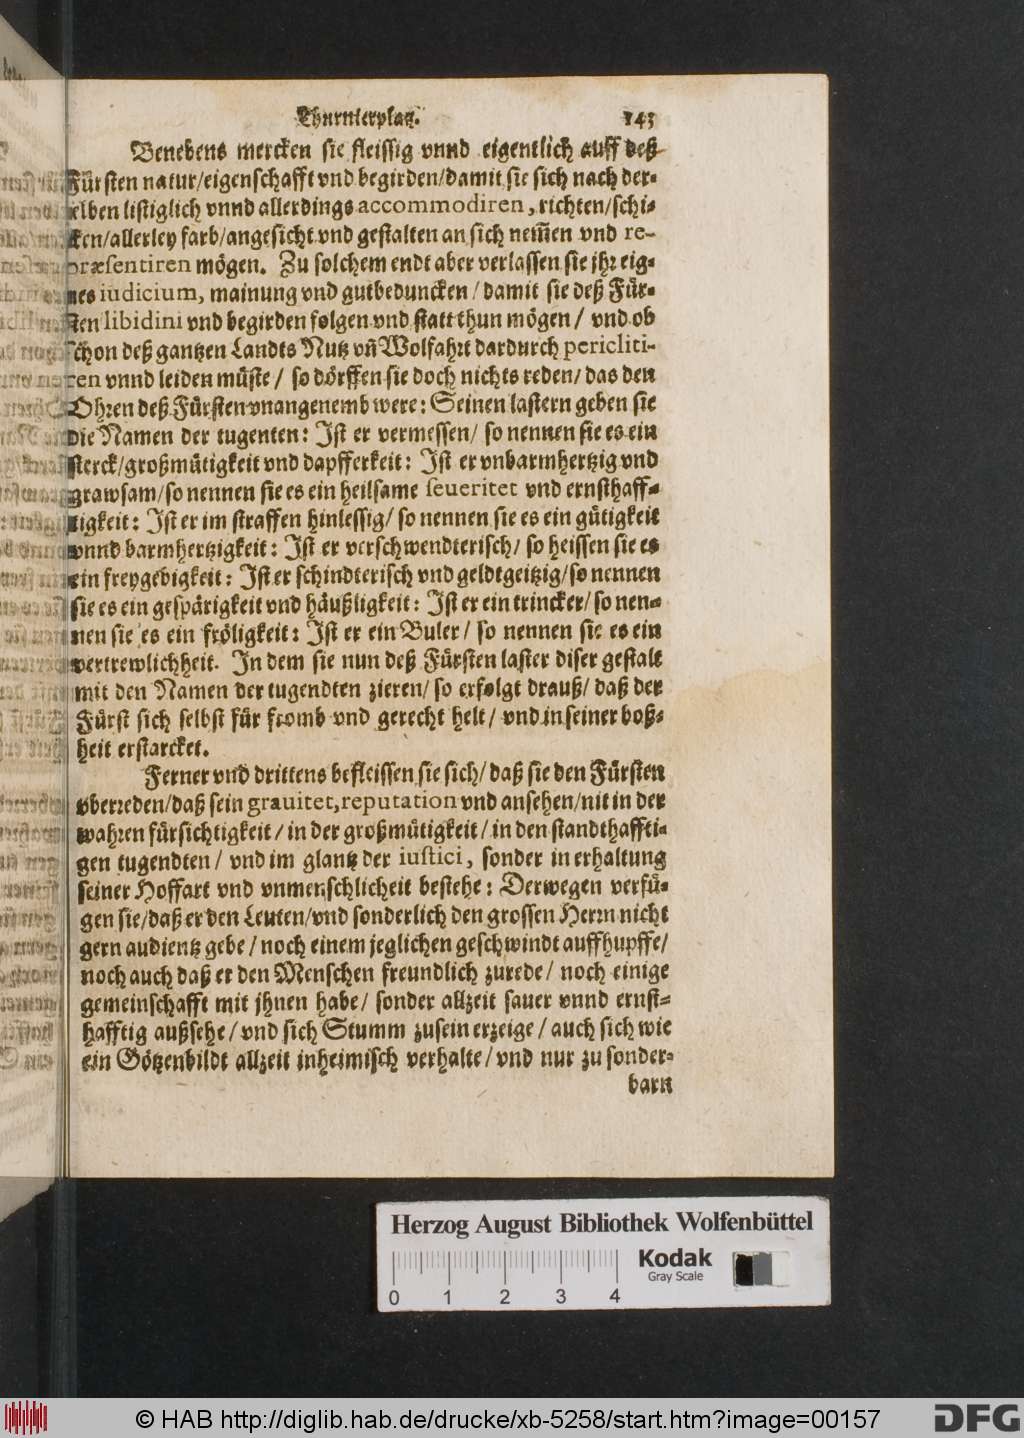 Thurnierplatz.  143
Benebens mercken sie fleissig vnnd eigentlich auff deß
Fürsten natur/eigenschafft vnd begirden/damit sie sich nach der-
selben listiglich vnnd allerdings accommodiren, richten/schi-
cken/allerley farb/angesicht vnd gestalten an sich nem̃en vnd re-
præsentiren mögen. Zu solchem endt aber verlassen sie jhr eig-
nes iudicium, mainung vnd gutbeduncken/damit sie deß Für-
sten libidini vnd begirden folgen vnd statt thun mögen/ vnd ob
schon deß gantzen Landts Nutz vñ Wolfahrt dardurch pericliti-
ren vnnd leiden müste/ so dörffen sie doch nichts reden/das den
Ohren deß Fürsten vnangenemb were: Seinen lastern geben sie
die Namen der tugenten: Ist er vermessen/ so nennen sie es ein
sterck/großmütigkeit vnd dapfferkeit: Ist er vnbarmhertzig vnd
grawsam/so nennen sie es ein heilsame seueritet vnd ernsthaff-
tigkeit: Ist er im straffen hinlessig/ so nennen sie es ein gütigkeit
vnnd barmhertzigkeit: Ist er verschwendterisch/ so heissen sie es
ein freygebigkeit: Ist er schindterisch vnd geldtgeitzig/so nennen
sie es ein gespärigkeit vnd häußligkeit: Ist er ein trincker/so nen-
nen sie es ein fröligkeit: Ist er ein Buler/ so nennen sie es ein
vertrewlichheit. In dem sie nun deß Fürsten laster diser gestalt
mit den Namen der tugendten zieren/so erfolgt drauß/ daß der
Fürst sich selbst für fromb vnd gerecht helt/ vnd in seiner boß-
heit erstarcket.
Ferner vnd drittens befleissen sie sich/daß sie den Fürsten
vberreden/daß sein grauitet, reputation vnd ansehen/nit in der
wahren fürsichtigkeit/in der großmütigkeit/in den standthaffti-
gen tugendten/ vnd im glantz der iustici, sonder in erhaltung
seiner Hoffart vnd vnmenschlicheit bestehe: Derwegen verfü-
gen sie/daß er den Leuten/vnd sonderlich den grossen Herrn nicht
gern audientz gebe/noch einem jeglichen geschwindt auffhupffe/
noch auch daß er den Menschen freundlich zurede/ noch einige
gemeinschafft mit jhnen habe/ sonder allzeit sauer vnnd ernst-
hafftig außsehe/vnd sich Stumm zusein erzeige/auch sich wie
ein Götzenbildt allzeit inheimisch verhalte/vnd nur zu sonder-
barn
Herzog August Bibliothek Wolfenbüttel
Kodak
Gray Scale
0 1 2 3 4
© HAB http://diglib.hab.de/drucke/xb-5258/start.htm?image=00157
DFG